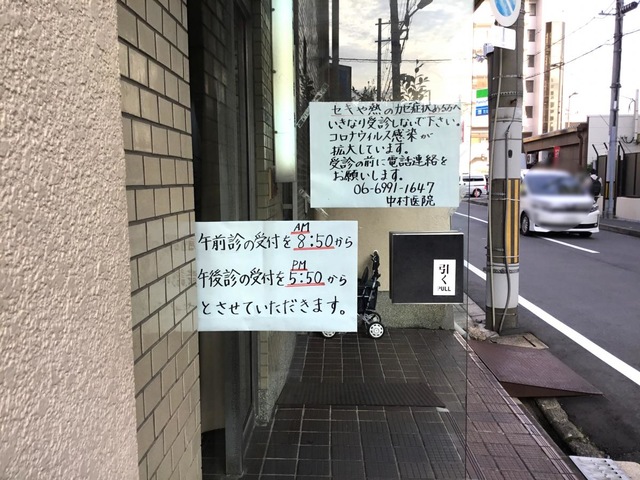 セキや熱のカゼ症状ある方へ
いきなり受診しないで下さい。
コロナウィルス感染が
拡大しています。
受診の前に電話連絡を
お願いします。
06-6991-1647
中村医院
AM
午前診の受付を8:50から
PM
午後診の受付を5:50から
とさせていただきます。
引く
PULL